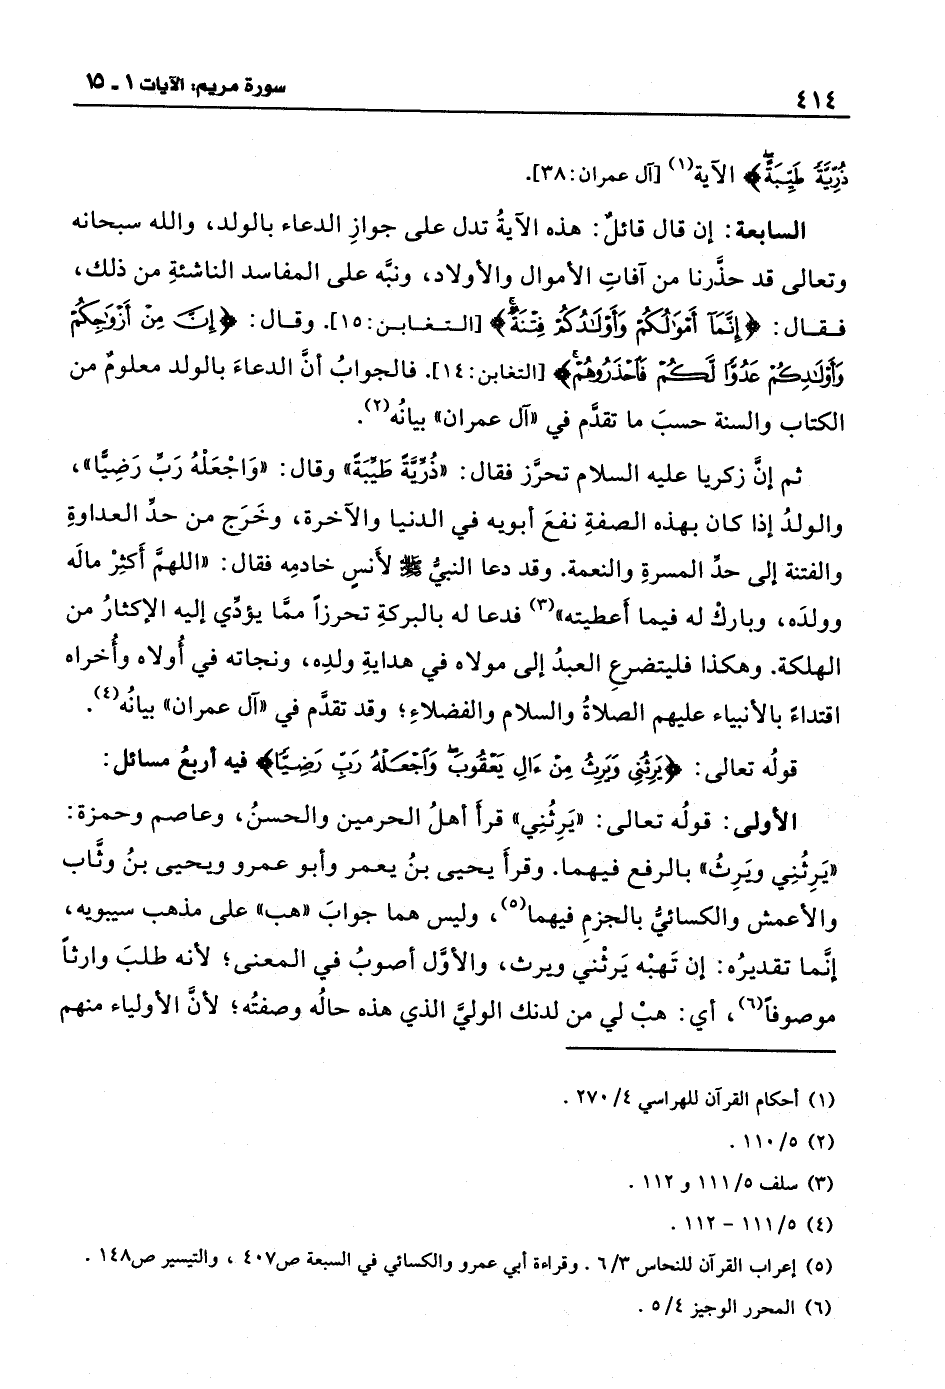 ٤١٤
سورة مريم: الآيات ١ ـ ١٥
ذُرِّيَّةً طَيِّبَةً﴾ الآية(١) [آل عمران: ٣٨].
السابعة: إن قال قائلٌ: هذه الآيةُ تدل على جوازِ الدعاء بالولد، والله سبحانه
وتعالى قد حذَّرنا من آفاتِ الأموال والأولاد، ونبَّه على المفاسد الناشئةِ من ذلك،
فـقـال: ﴿إِنَّمَآ أَمْوَٰلُكُمْ وَأَوْلَٰدُكُمْ فِتْنَةٌ﴾ [الـتـغـابـن: ١٥]. وقـال: ﴿إِنَّ مِنْ أَزْوَٰجِكُمْ
وَأَوْلَٰدِكُمْ عَدُوًّا لَّكُمْ فَٱحْذَرُوهُمْ﴾ [التغابن: ١٤]. فالجوابُ أنَّ الدعاءَ بالولد معلومٌ من
الكتاب والسنة حسبَ ما تقدَّم في «آل عمران» بيانُه(٢).
ثم إنَّ زكريا عليه السلام تحرَّز فقال: «ذُرِّيَّةً طَيِّبَةً» وقال: «وَاجْعَلْهُ رَبِّ رَضِيًّا»،
والولدُ إذا كان بهذه الصفةِ نفعَ أبويه في الدنيا والآخرة، وخَرَج من حدِّ العداوةِ
والفتنة إلى حدِّ المسرةِ والنعمة. وقد دعا النبيُّ ﷺ لأنسٍ خادمِه فقال: «اللهمَّ أَكثِرْ مالَه
وولدَه، وباركْ له فيما أَعطيته»(٣) فدعا له بالبركةِ تحرزاً ممَّا يؤدِّي إليه الإكثارُ من
الهلكة. وهكذا فليتضرعِ العبدُ إلى مولاه في هدايةِ ولدِه، ونجاته في أُولاه وأُخراه
اقتداءً بالأنبياء عليهم الصلاةُ والسلام والفضلاءِ؛ وقد تقدَّم في «آل عمران» بيانُه(٤).
قولُه تعالى: ﴿يَرِثُنِي وَيَرِثُ مِنْ ءَالِ يَعْقُوبَ وَٱجْعَلْهُ رَبِّ رَضِيًّا﴾ فيه أربعُ مسائل:
الأولى: قولُه تعالى: «يَرِثُنِي» قرأ أهلُ الحرمين والحسنُ، وعاصم وحمزة:
«يَرِثُني ويَرِثُ» بالرفع فيهما. وقرأ يحيى بنُ يعمر وأبو عمرو ويحيى بنُ وثَّاب
والأعمش والكسائيُّ بالجزمِ فيهما(٥)، وليس هما جوابَ «هب» على مذهب سيبويه،
إنَّما تقديرُه: إن تَهبْه يَرثْني ويرث، والأوَّل أصوبُ في المعنى؛ لأنه طلبَ وارثاً
موصوفاً(٦)، أي: هبْ لي من لدنك الوليَّ الذي هذه حالُه وصفتُه؛ لأنَّ الأولياء منهم
(١) أحكام القرآن للهراسي ٤/ ٢٧٠ .
(٢) ٥/ ١١٠ .
(٣) سلف ٥/ ١١١ و ١١٢ .
(٤) ٥/ ١١١ - ١١٢ .
(٥) إعراب القرآن للنحاس ٣/ ٦ . وقراءة أبي عمرو والكسائي في السبعة ص٤٠٧ ، والتيسير ص١٤٨ .
(٦) المحرر الوجيز ٤/ ٥ .